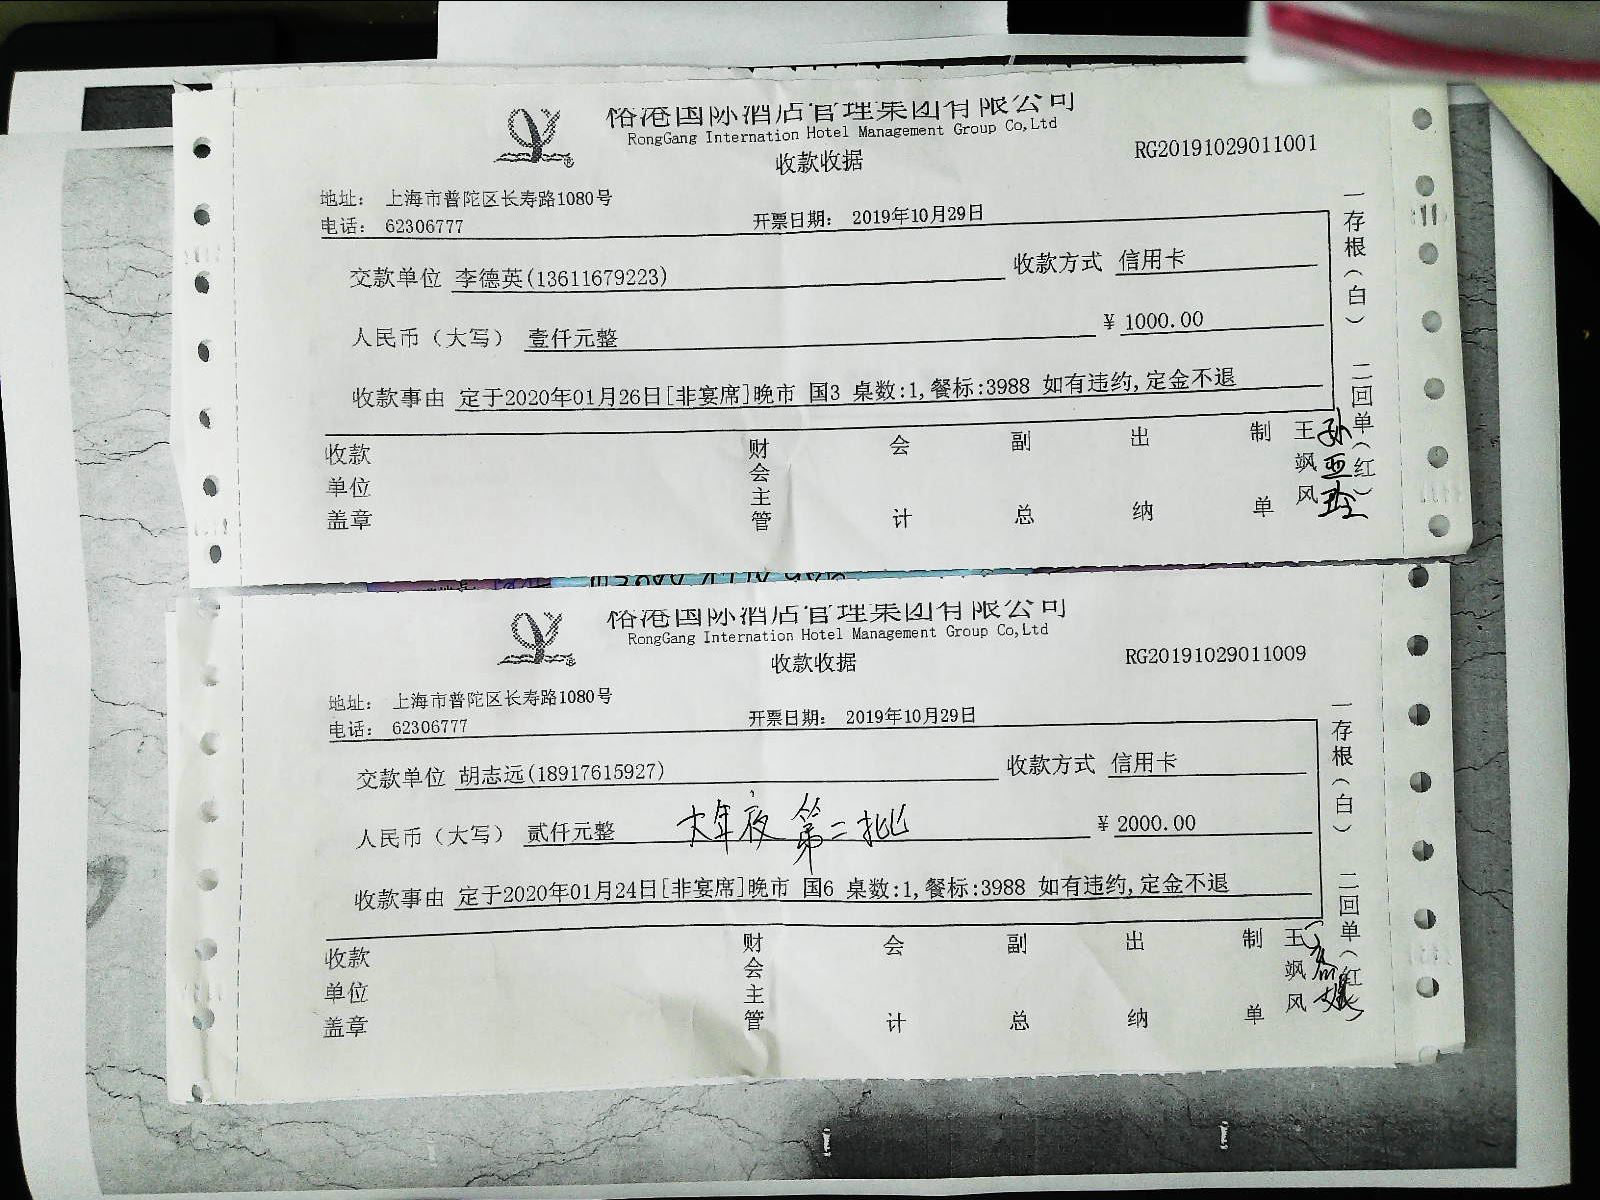 裕港国际酒店管理集团有限公司
RongGang Internation Hotel Management Group Co,Ltd
收款收据
RG20191029011001
地址： 上海市普陀区长寿路1080号
电话： 62306777
开票日期： 2019年10月29日
交款单位 李德英(13611679223)
收款方式 信用卡
人民币（大写） 壹仟元整
¥ 1000.00
收款事由 定于2020年01月26日[非宴席]晚市 国3 桌数:1,餐标:3988 如有违约,定金不退
一存根（白） 二回单（红）
收款单位盖章
财会主管
会计
副总
出纳
制单
王飒风
裕港国际酒店管理集团有限公司
RongGang Internation Hotel Management Group Co,Ltd
收款收据
RG20191029011009
地址： 上海市普陀区长寿路1080号
电话： 62306777
开票日期： 2019年10月29日
交款单位 胡志远(18917615927)
收款方式 信用卡
人民币（大写） 贰仟元整
大年夜 第二批
¥ 2000.00
收款事由 定于2020年01月24日[非宴席]晚市 国6 桌数:1,餐标:3988 如有违约,定金不退
一存根（白） 二回单（红）
收款单位盖章
财会主管
会计
副总
出纳
制单
王飒风